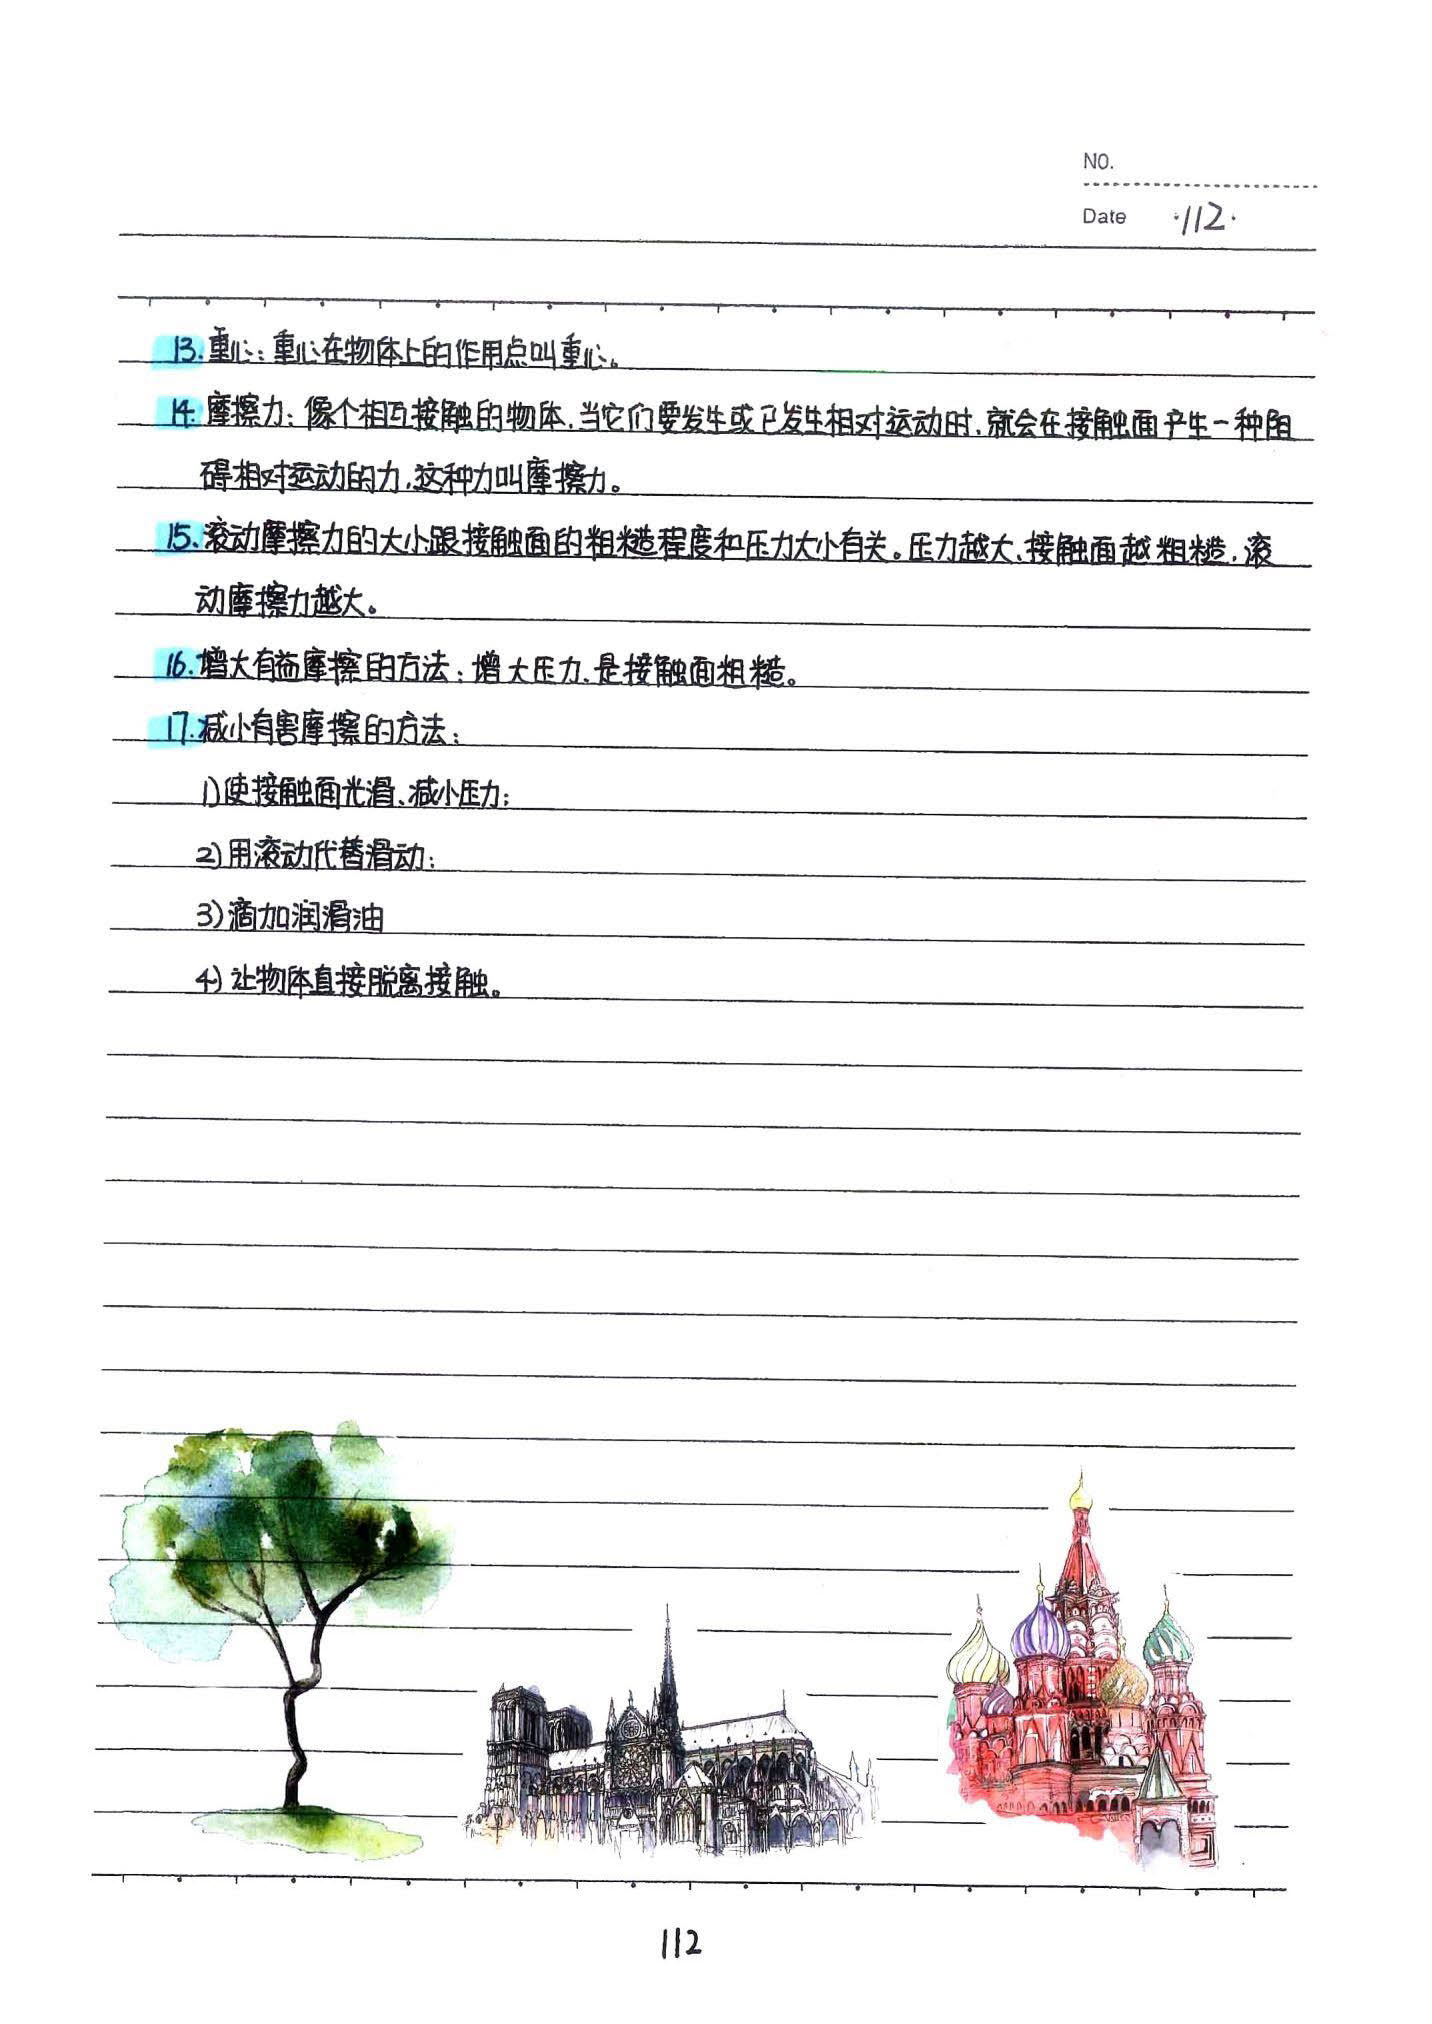 NO.
Date ·112·
13.重心：重心在物体上的作用点叫重心。
14.摩擦力：像个相互接触的物体，当它们要发生或已发生相对运动时，就会在接触面产生一种阻
碍相对运动的力，这种力叫摩擦力。
15.滚动摩擦力的大小跟接触面的粗糙程度和压力大小有关。压力越大、接触面越粗糙，滚
动摩擦力越大。
16.增大有益摩擦的方法：增大压力、是接触面粗糙。
17.减小有害摩擦的方法：
1)使接触面光滑、减小压力；
2)用滚动代替滑动；
3)滴加润滑油
4)让物体直接脱离接触。
112